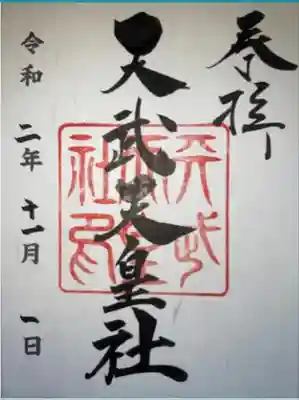 奉拝
天武天皇社
令和二年十一月一日